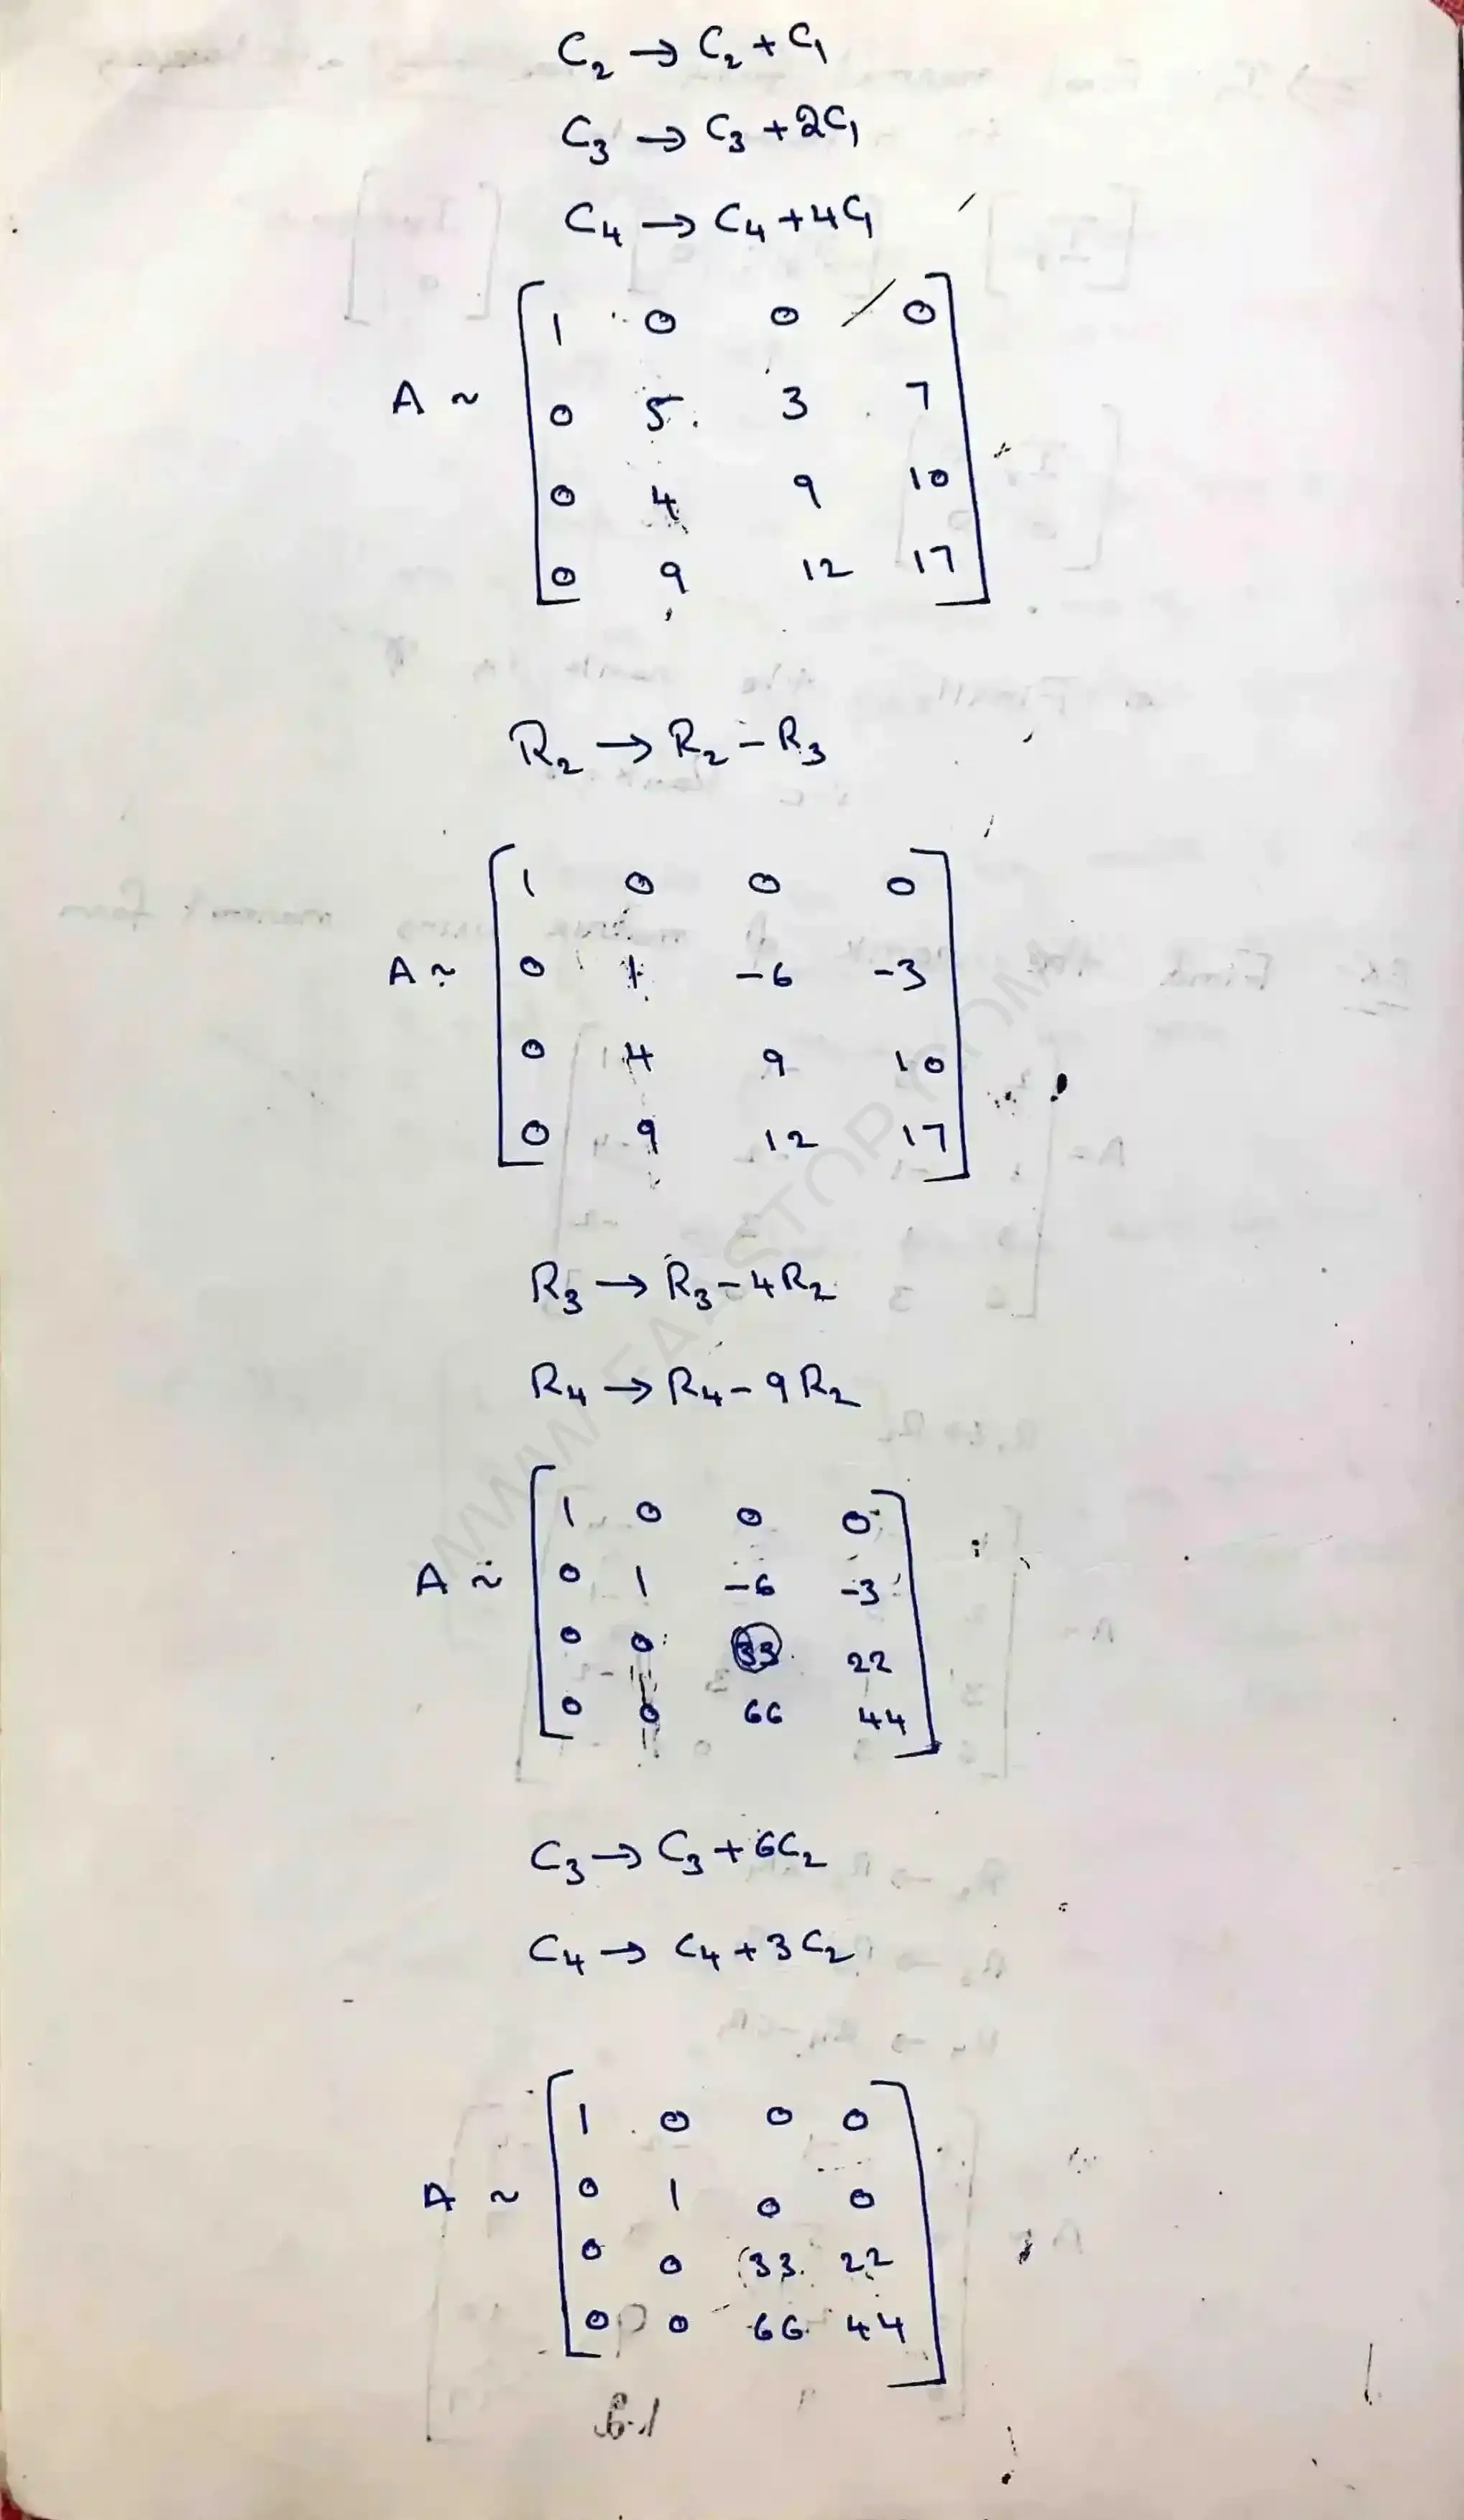 C₂ → C₂ + C₁
C₃ → C₃ + 2C₁
C₄ → C₄ + 4C₁
A ~ [ 1 0 0 0
0 5 3 7
0 4 9 10
0 9 12 17 ]
R₂ → R₂ - R₃
A ~ [ 1 0 0 0
0 1 -6 -3
0 4 9 10
0 9 12 17 ]
R₃ → R₃ - 4R₂
R₄ → R₄ - 9R₂
A ~ [ 1 0 0 0
0 1 -6 -3
0 0 33 22
0 0 66 44 ]
C₃ → C₃ + 6C₂
C₄ → C₄ + 3C₂
A ~ [ 1 0 0 0
0 1 0 0
0 0 33 22
0 0 66 44 ]